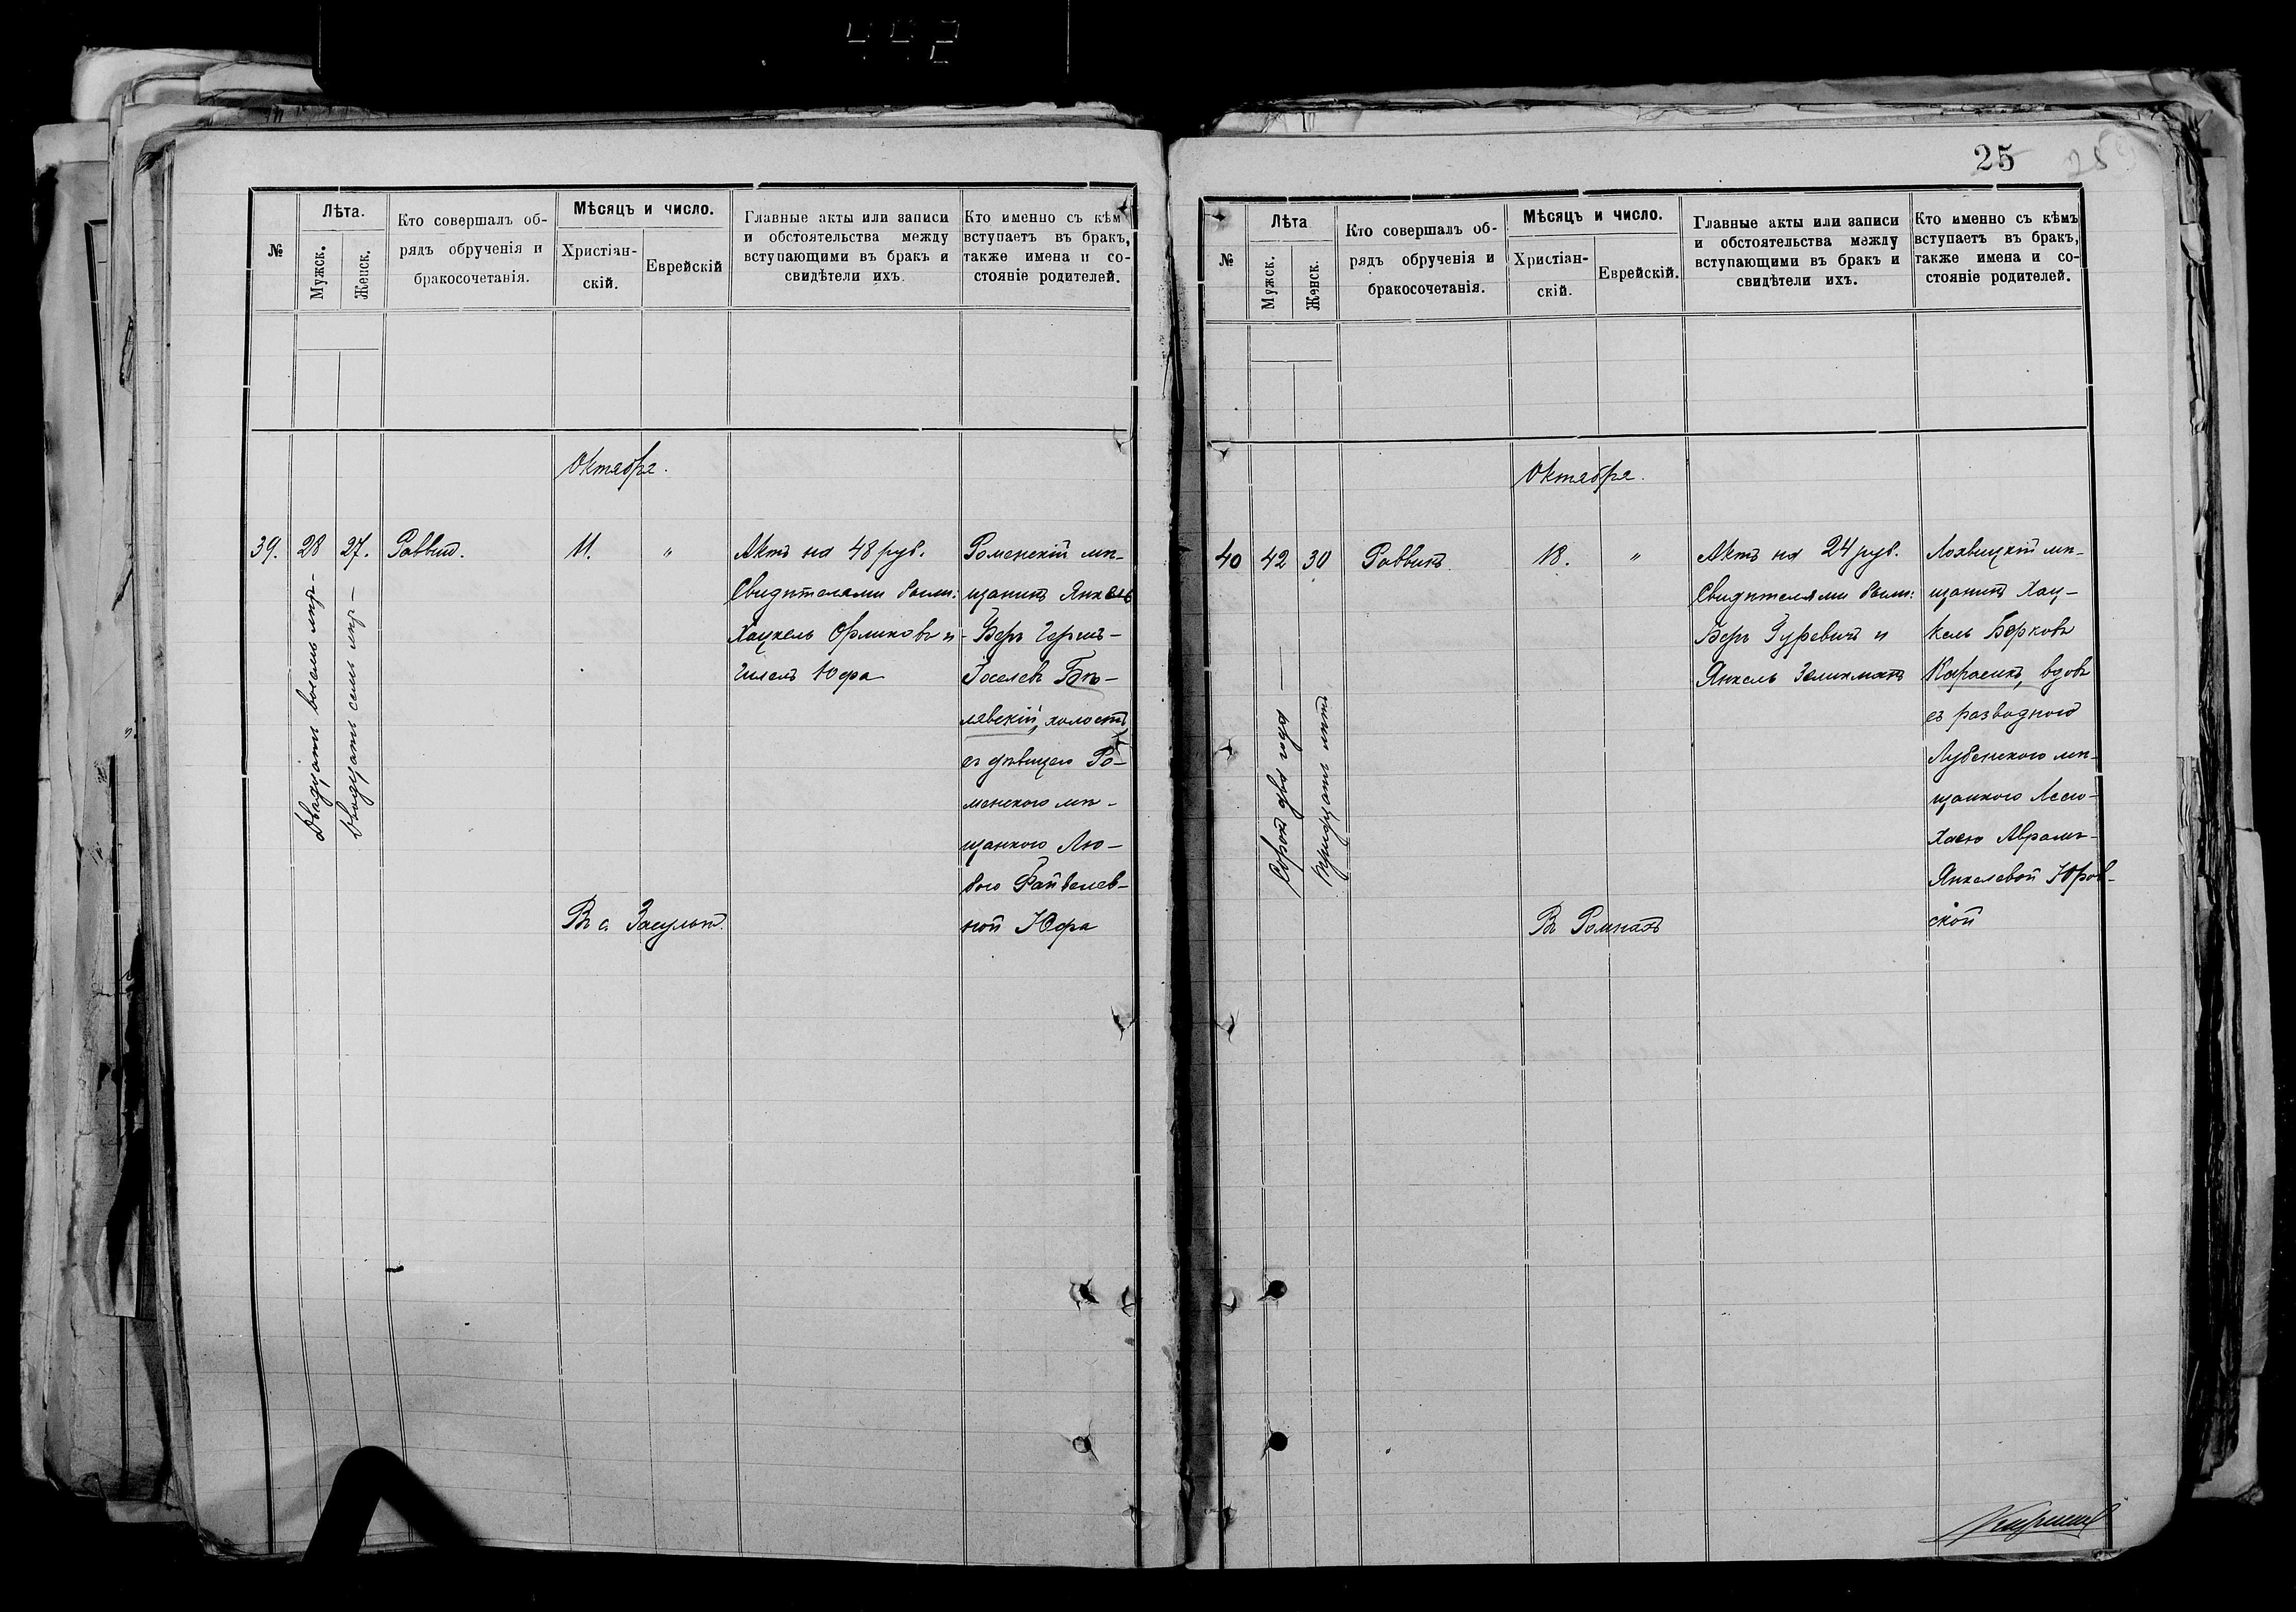 25
№
Лѣта.
Мужск.
Женск.
Кто совершалъ об-
рядъ обрученія и
бракосочетанія.
Мѣсяцъ и число.
Христіан-
скій.
Еврейскій
Главные акты или записи
и обстоятельства между
вступающими въ бракъ и
свидѣтели ихъ.
Кто именно съ кѣм
вступаетъ въ бракъ,
также имена и со-
стояніе родителей.
Октября.
39.
28
Двадцать восемь лѣтъ
27.
Двадцать семь лѣтъ
Раввин.
11.
"
Въ с. Засульи.
Актъ на 48 руб.
Свидѣтелями были:
Хацкель Орликовъ и
Гилель Юфа
Роменскій мѣ-
щанинъ Янкель
-Беръ Гершъ-
Іоселевъ Бѣ-
лявскій, холостъ
съ дѣвицею Ро-
менскою мѣ-
щанкою Лю-
бою Файвелев-
ной Юфа
№
Лѣта
Мужск.
Женск.
Кто совершалъ об-
рядъ обрученія и
бракосочетанія.
Мѣсяцъ и число.
Христіан-
скій.
Еврейскій.
Главные акты или записи
и обстоятельства между
вступающими въ бракъ и
свидѣтели ихъ.
Кто именно съ кѣмъ
вступаетъ въ бракъ,
также имена и со-
стояніе родителей.
Октября.
40
42
Сорокъ два года
30
Тридцать лѣтъ
Раввинъ
18.
"
Въ Ромнахъ
Актъ на 24 руб.
Свидѣтелями были:
Беръ Гуревичъ и
Янкель Зеликманъ
Лохвицкій мѣ-
щанинъ Хац-
кель Берковъ
Карасикъ, вдовъ
съ разводною
Лубенскою мѣ-
щанкою Лею-
Хасею Аврамъ-
Янкелевой Юров-
ской